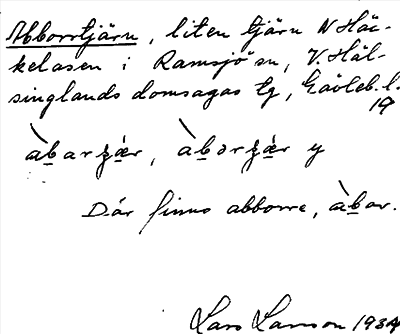 Abborrtjärn, liten tjärn N Häc-
kelasen i Ramsjö sn, V. Häl-
singlands domsagas tg, Gävleb. l.
19
àb̲arʒæ̀r, àb̲ərʒæ̀r y
Där finns abborre, àb̲ar.
Lars Larsson 1934